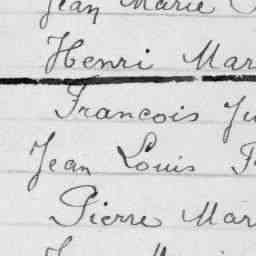 Jean Marie
Henri Mar
Francois Ju
Jean Louis F
Pierre Mar